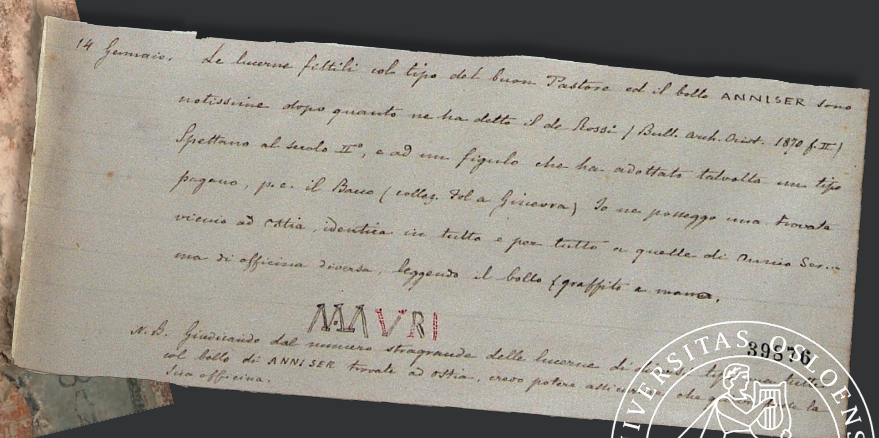 14 Gennaio. Le lucerne fittili col tipo del buon Pastore ed il bollo ANNISER sono
notissime dopo quanto ne ha detto il de Rossi (Bull. arch. Crist. 1870 f. II)
Spettano al secolo IIº, e ad un figulo che ha adottato talvolta un tipo
pagano, p.e. il Bacco (collez. Fol a Ginevra) Io ne posseggo una trovata
vicino ad Ostia, identica in tutto e per tutto a quelle di Annio Ser...
ma di officina diversa, leggendo il bollo (graffito a mano.
MAVRI
N.B. Giudicando dal numero stragrande delle lucerne di
col bollo di ANNISER trovate ad Ostia, credo potere che la
sua officina.
39876
VERSITAS OSLOENS